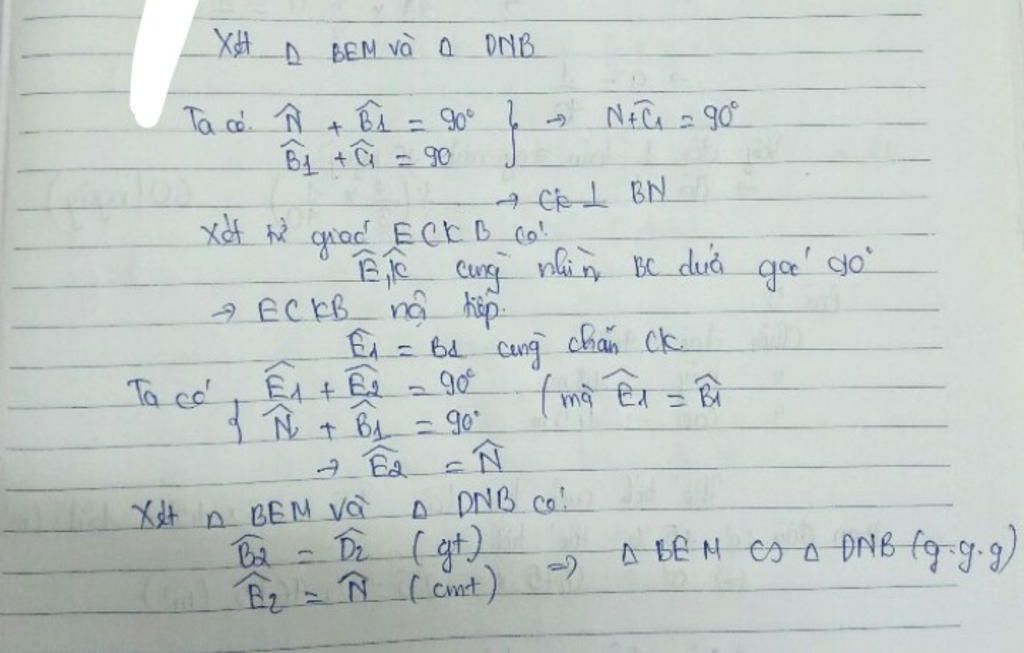 Xét Δ BEM và Δ DNB
Ta có. N̂ + B̂1 = 90° } → N+Ĉ1 = 90°
B̂1 + Ĉ1 = 90
→ CK ⊥ BN
Xét tứ giác ECKB có:
Ê, K̂ cùng nhìn BC dưới góc 90°
→ ECKB nội tiếp.
Ê1 = B1 cùng chắn CK.
Ta có { Ê1 + Ê2 = 90° (mà Ê1 = B̂1
N̂ + B̂1 = 90°
→ Ê2 = N̂
Xét Δ BEM và Δ DNB có:
B̂2 = D̂2 (gt) => Δ BEM ∽ Δ DNB (g.g.g)
Ê2 = N̂ (cmt)